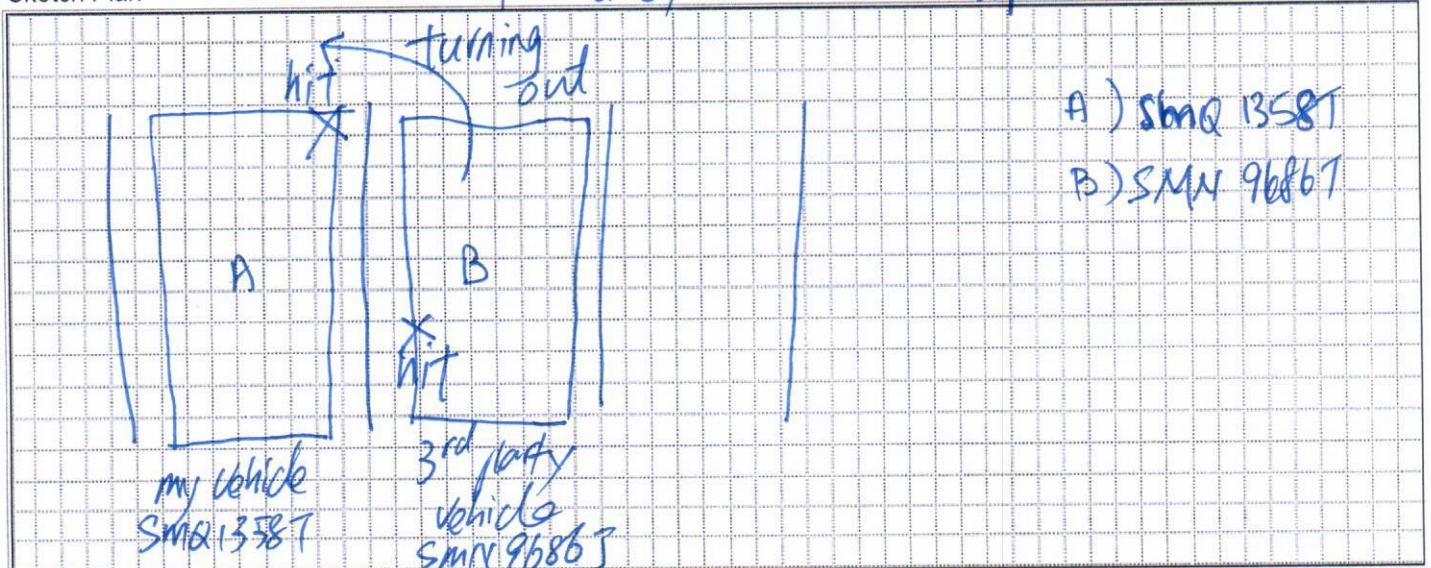 turning
out
hit
A) SMQ 1358T
B) SMN 9686T
A
B
hit
my vehicle
SMQ1358T
3rd party
vehicle
SMN 9686J